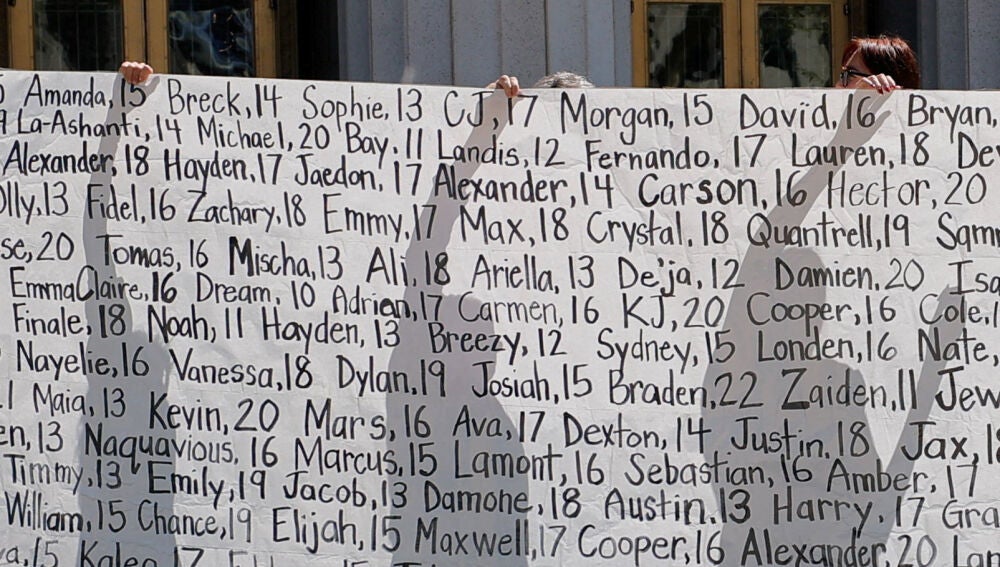 Amanda, 15 Breck, 14 Sophie, 13 CJ, 17 Morgan, 15 David, 16 Bryan,
La-Ashanti, 14 Michael, 20 Bay, 11 Landis, 12 Fernando, 17 Lauren, 18
Alexander, 18 Hayden, 17 Jaedon, 17 Alexander, 14 Carson, 16 Hector, 20
olly, 13 Fidel, 16 Zachary, 18 Emmy, 17 Max, 18 Crystal, 18 Quantrell, 19
se, 20 Tomas, 16 Mischa, 13 Ali, 18 Ariella, 13 De'ja, 12 Damien, 20 Isa
EmmaClaire, 16 Dream, 10 Adrian, 17 Carmen, 16 KJ, 20 Cooper, 16 Cole,
Finale, 18 Noah, 11 Hayden, 13 Breezy, 12 Sydney, 15 Londen, 16 Nate,
Nayelie, 16 Vanessa, 18 Dylan, 19 Josiah, 15 Braden, 22 Zaiden, 11 Jew
Maia, 13 Kevin, 20 Mars, 16 Ava, 17 Dexton, 14 Justin, 18 Jax,
en, 13 Naquavious, 16 Marcus, 15 Lamont, 16 Sebastian, 16 Amber, 17
Timmy, 13 Emily, 19 Jacob, 13 Damone, 18 Austin, 13 Harry, 17 Gra
William, 15 Chance, 19 Elijah, 15 Maxwell, 17 Cooper, 16 Alexander, 20 Lan
a, 15 Kaleo, 17